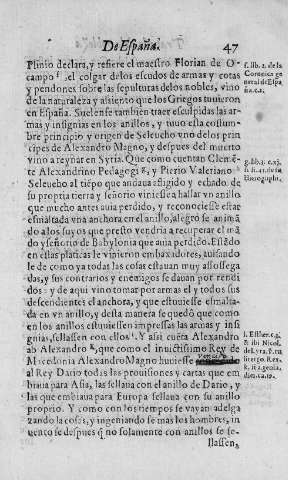 De España. 47
Plinio declara, y refiere el maestro Florian de O-
campo f. el colgar de los escudos de armas y cotas
y pendones sobre las sepulturas delos nobles, vino
de la naturaleza y assiento que los Griegos tuuieron
en España. Suelense tambien traer esculpidas las ar-
mas y insignias en los anillos, y tuuo esta costum-
bre principio y origen de Seleucho vno delos prin
cipes de Alexandro Magno, y despues del muerto
vino a reynar en Syria. Que como cuentan Cleme-
te Alexandrino Pedagogi g, y Pierio Valeriano
Seleucho al tiẽpo que andaua afligido y echado de
su propria tierra y señorio viniesse a hallar vn anillo
que mucho antes auia perdido, y reconociesse estar
esmaltada vna anchora en el anillo, alegrò se anima
do a los suyos que presto vendria a recuperar el mã
do y señorio de Babylonia que auia perdido. Estãdo
en estas platicas le vinieron embaxadores, auisando
le de como ya todas las cosas estauan muy assossega
das, y sus contrarios y enemigos se dauan por rendi
dos: y de aqui vino tomar por armas el y todos sus
descendientes el anchora, y que estuuiesse esmalta-
da en vn anillo, y desta manera se quedò que como
en los anillos estuuiessen impressas las armas y insi
gnias, sellassen con ellos. Y assi cuẽta Alexandro
ab Alexandro &, que como el inuictissimo Rey de
Macedonia Alexandro Magno huuiesse
al Rey Dario todas las prouisiones y cartas que em
biaua para Asia, las sellaua con el anillo de Dario, y
las que embiaua para Europa sellaua con su anillo
proprio. Y como con los tiempos se vayan adelga
zando las cosas, y ingeniando se mas los hombres, in
uento se despues q̃ no solamente con anillos se se-
llassen,
f. lib. 2. de la
Coronica ge
neral de Espa
ña. c. 2.